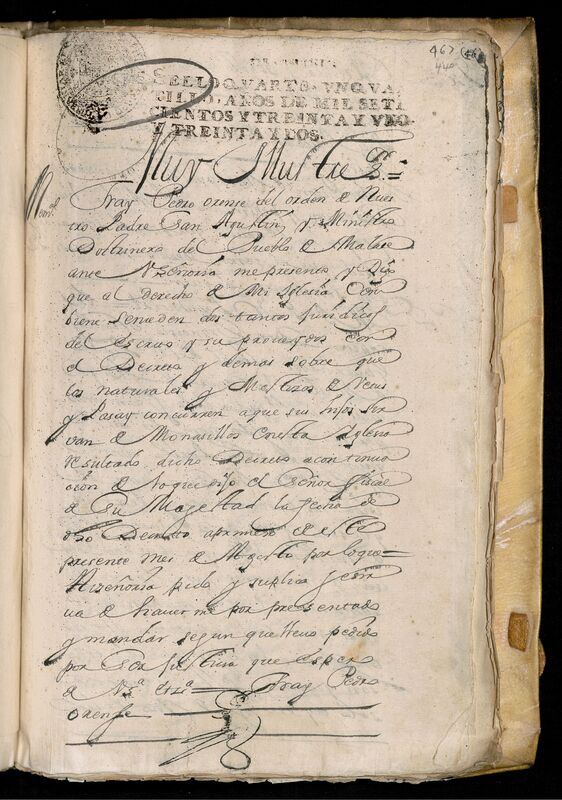 467
440
SELLO QVARTO, VNQVA,
TILLO, AÑOS DE MIL SETE
CIENTOS Y TREINTA Y VNO
Y TREINTA Y DOS.
Muy Illustre Sor.=
Fray Pedro orense del orden de Nues
tro Padre San Agustin, y Ministro
Doctrinero del Pueblo de Malate
ante V. Señoria me presento y Digo
que al derecho de Mi Iglesia Con
biene se me den dos tantos juridicos
del escrito y su proveydos con
el Decreto y demas sobre que
los naturales y Mestizos de
y Pasay concurren a que sus hijos sir
van de Monasillos en esta Iglesia
resultado dicho Decreto a continua
cion de lo que dijo el Señor fiscal
de Su Magestad la fecha de
dho Decreto a primero de este
presente mes de Agosto por lo que=
A V. señoria pido y suplico se sir
va de haver me por presentado
y mandar segun que llevo pedido
por Ser justicia que espero
de V. Sa. etza. Fray Pedro
orense